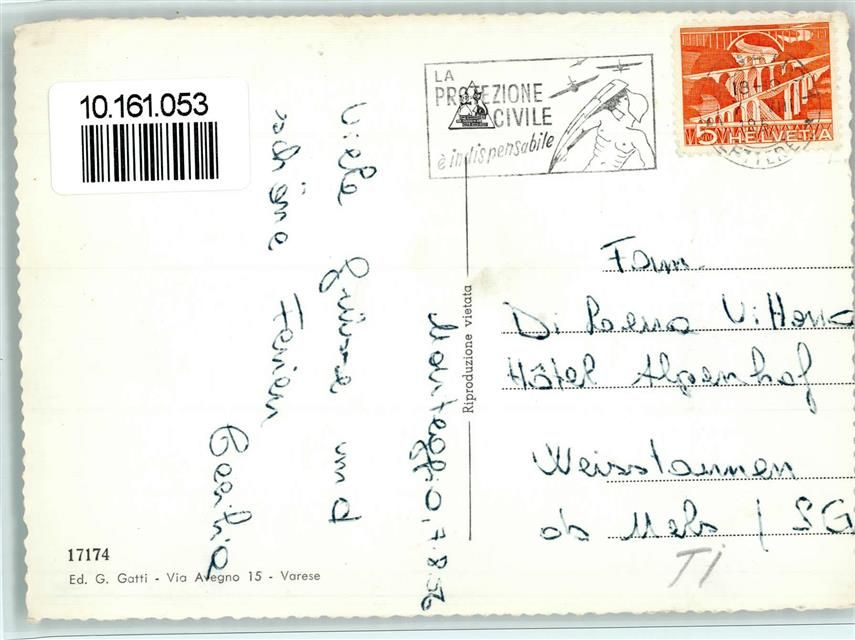 10.161.053
LA
PROTEZIONE
CIVILE
è indispensabile
5 HELVETIA
LETTERE
Viele Grüsse und
schöne Ferien
Monteggio, 7.8.56
Riproduzione vietata
Fam.
Hôtel Alpenhof
Weisstannen
SG
TI
17174
Ed. G. Gatti - Via Avegno 15 - Varese